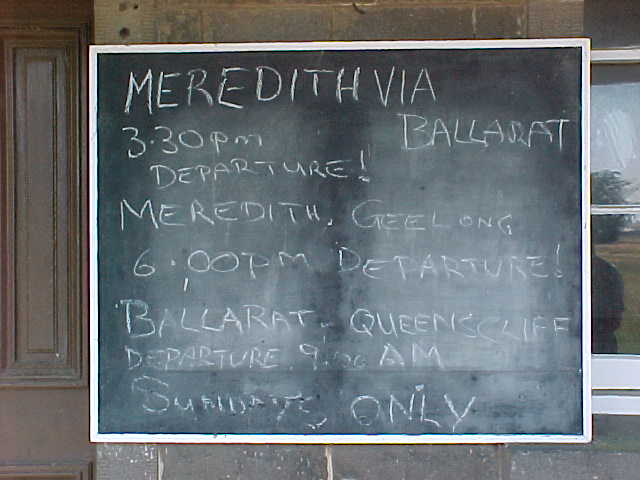 MEREDITH VIA
BALLARAT
3.30pm
DEPARTURE!
MEREDITH. GEELONG
6.00pm DEPARTURE!
BALLARAT. QUEENSCLIFF
DEPARTURE. 9.00 AM
Sundays, ONLY